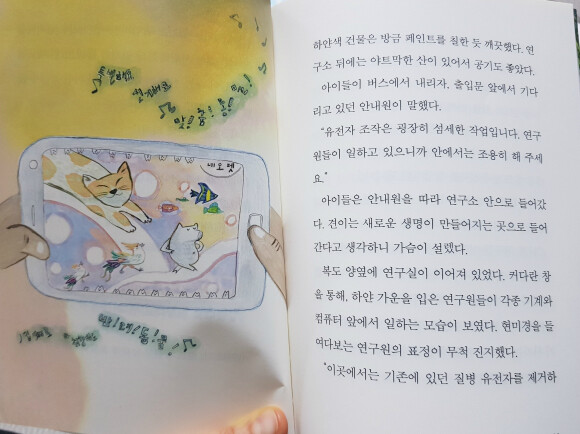 맞! 춤! 형!
네오 펫
하얀색 건물은 방금 페인트를 칠한 듯 깨끗했다. 연
구소 뒤에는 야트막한 산이 있어서 공기도 좋았다.
아이들이 버스에서 내리자, 출입문 앞에서 기다
리고 있던 안내원이 말했다.
"유전자 조작은 굉장히 섬세한 작업입니다. 연구
원들이 일하고 있으니까 안에서는 조용히 해 주세
요."
아이들은 안내원을 따라 연구소 안으로 들어갔
다. 건이는 새로운 생명이 만들어지는 곳으로 들어
간다고 생각하니 가슴이 설렜다.
복도 양옆에 연구실이 이어져 있었다. 커다란 창
을 통해, 하얀 가운을 입은 연구원들이 각종 기계와
컴퓨터 앞에서 일하는 모습이 보였다. 현미경을 들
여다보는 연구원의 표정이 무척 진지했다.
"이곳에서는 기존에 있던 질병 유전자를 제거하